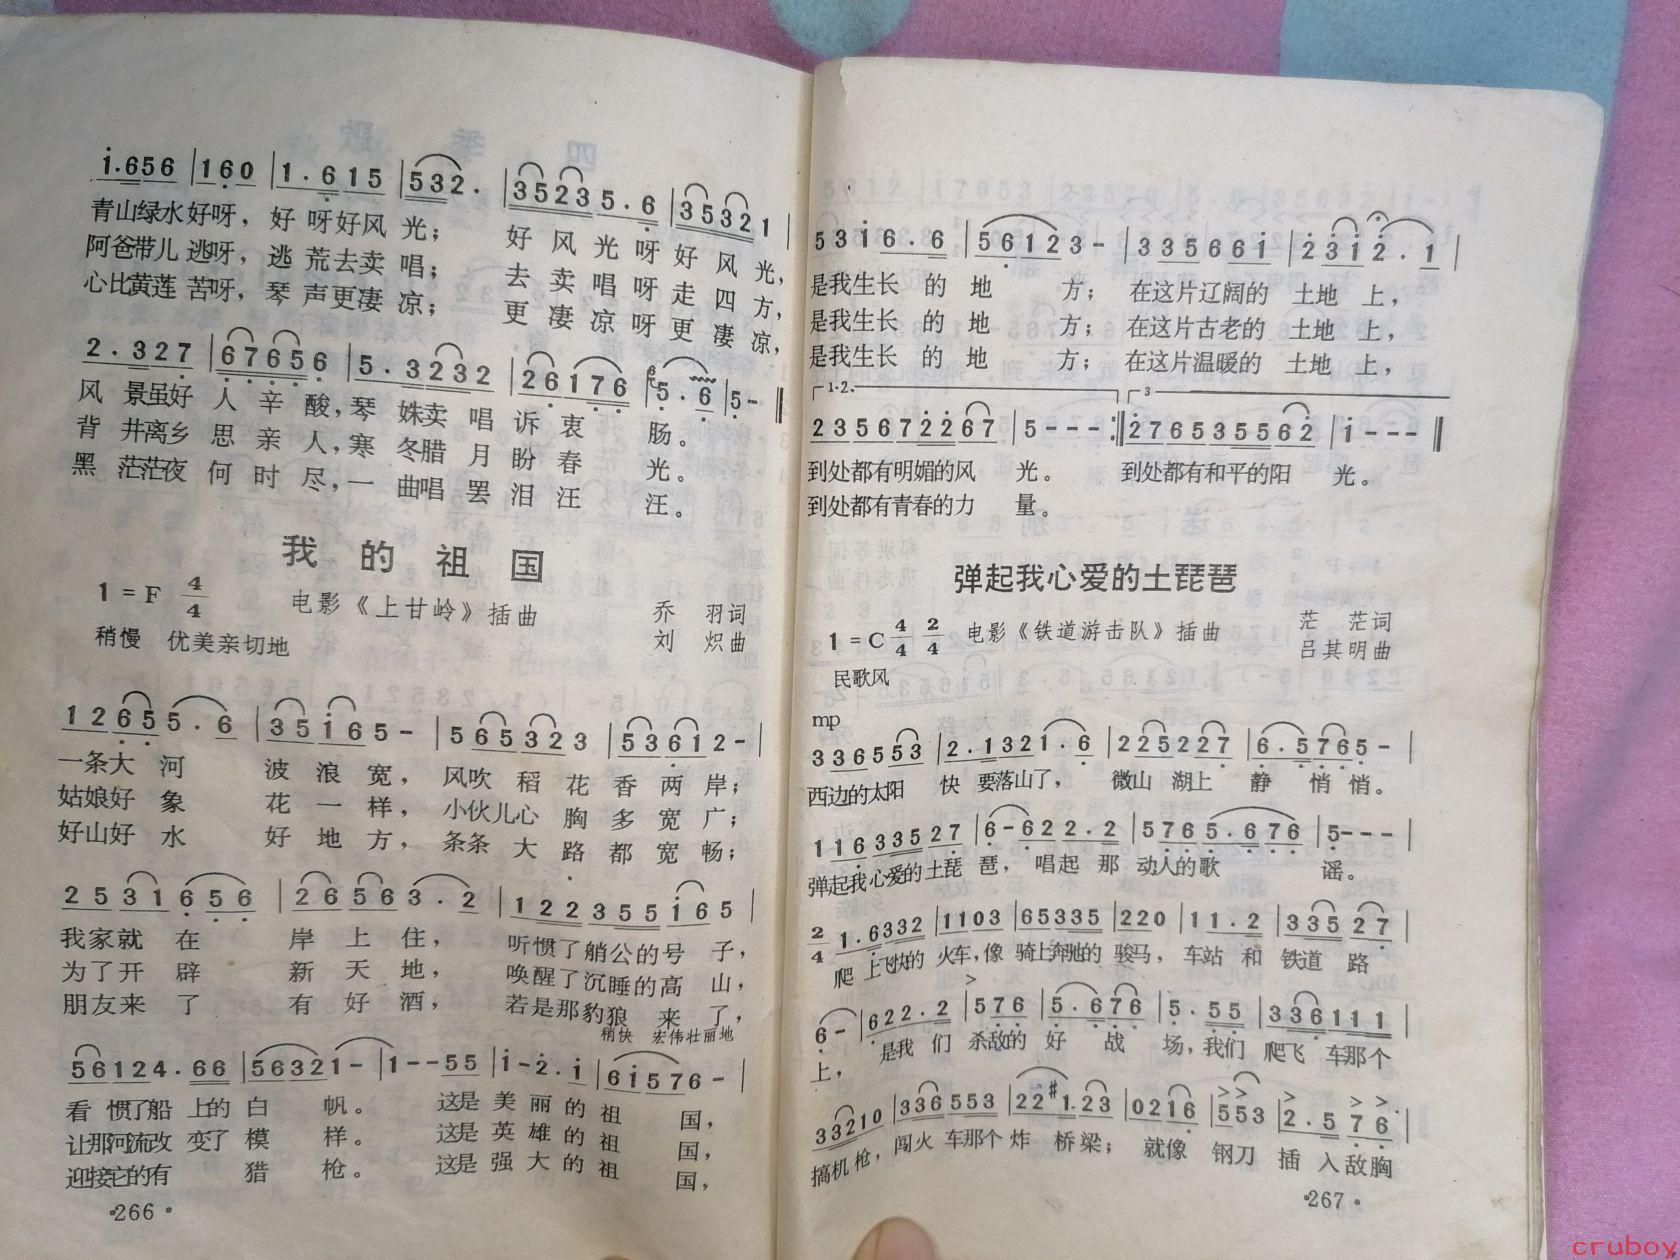 i.656 | 160 | 1.615 | 532. | 35235.6 | 35321 |
青山绿水好呀，好呀好风光；好风光呀好风光，
阿爸带儿逃呀，逃荒去卖唱；去卖唱呀走四方，
心比黄莲苦呀，琴声更凄凉；更凄凉呀更凄凉，
2.327 | 67656 | 5.3232 | 26176 | 5.6 | 5-
风景虽好人辛酸，琴姝卖唱诉衷肠。
背井离乡思亲人，寒冬腊月盼春光。
黑茫茫夜何时尽，一曲唱罢泪汪汪。
我的祖国
1=F 4/4 电影《上甘岭》插曲 乔羽词
稍慢 优美亲切地 刘炽曲
12655.6 | 35i65- | 565323 | 53612- |
一条大河波浪宽，风吹稻花香两岸；
姑娘好象花一样，小伙儿心胸多宽广；
好山好水好地方，条条大路都宽畅；
2531656 | 26563.2 | 122355i65 |
我家就在岸上住，听惯了艄公的号子，
为了开辟新天地，唤醒了沉睡的高山，
朋友来了有好酒，若是那豺狼来了，
稍快 宏伟壮丽地
56124.66 | 56321- | 1--55 | i-2.i | 6i576- |
看惯了船上的白帆。这是美丽的祖国，
让那河流改变了模样。这是英雄的祖国，
迎接它的有猎枪。这是强大的祖国，
·266·
53i6.6 | 56123- | 335661 | 23i2.1 |
是我生长的地方；在这片辽阔的土地上，
是我生长的地方；在这片古老的土地上，
是我生长的地方；在这片温暖的土地上，
1·2· 3
235672267 | 5--- :‖ 276535562 | i--- ‖
到处都有明媚的风光。到处都有和平的阳光。
到处都有青春的力量。
弹起我心爱的土琵琶
茫茫词
1=C 4/4 2/4 电影《铁道游击队》插曲 吕其明曲
民歌风
mp
3365553 | 2.1321.6 | 225227 | 6.5765- |
西边的太阳快要落山了，微山湖上静悄悄。
11633527 | 6-622.2 | 5765.676 | 5--- |
弹起我心爱的土琵琶，唱起那动人的歌谣。
2/4 1.6332 | 1103 | 65335 | 220 | 11.2 | 33527 |
爬上飞快的火车，像骑上奔驰的骏马，车站和铁道路
6- | 622.2 | 576 | 5.676 | 5.55 | 336111 |
上，是我们杀敌的好战场，我们爬飞车那个
33210 | 336553 | 22#1.23 | 0216 | 553 | 2.576 |
搞机枪，闯火车那个炸桥梁；就像钢刀插入敌胸
·267·
cruboy